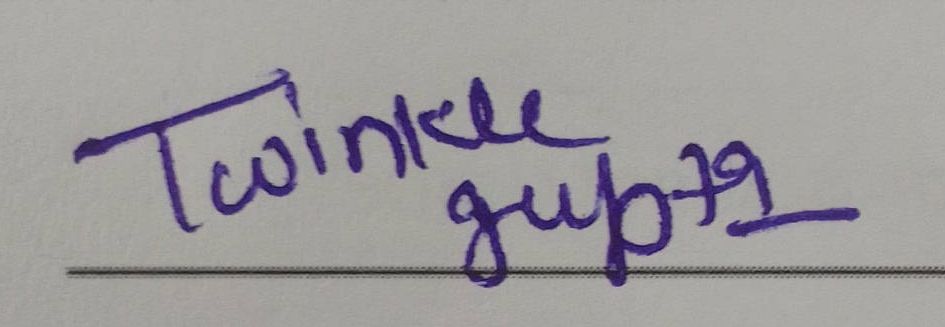 Twinkle
gupta